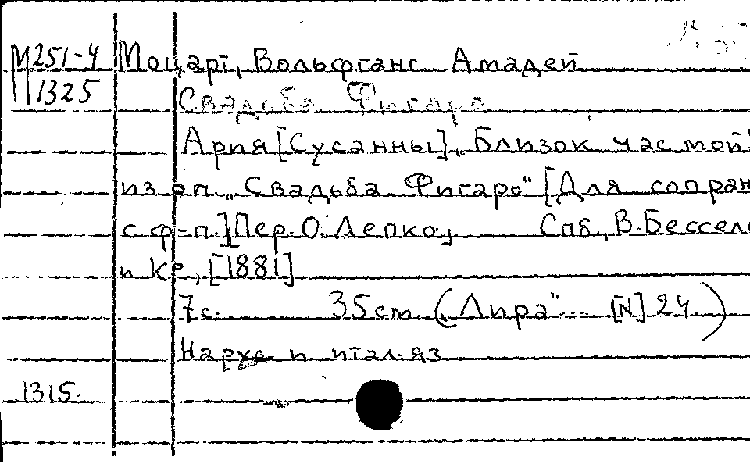 М251-4 Моцарт, Вольфганг Амадей
1325 Свадьба Фигаро
Ария [Сусанны] „Близок час мой"
из оп. „Свадьба Фигаро" [Для сопран
с ф-п.] Пер. О. Лепко, Спб, В. Бессель
и Кº, [1881]
7 с. 35 cm („Лира" [N] 24)
На рус. и итал. яз
1315.